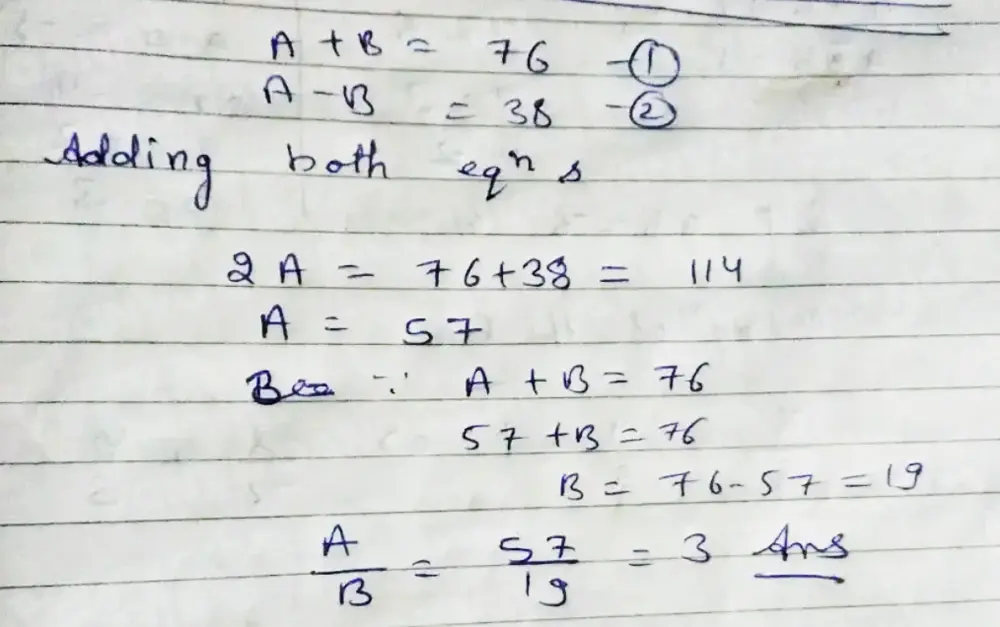 A + B = 76 -①
A - B = 38 -②
Adding both eqⁿ s
2 A = 76+38 = 114
A = 57
∵ A + B = 76
57 + B = 76
B = 76 - 57 = 19
A/B = 57/19 = 3 Ans